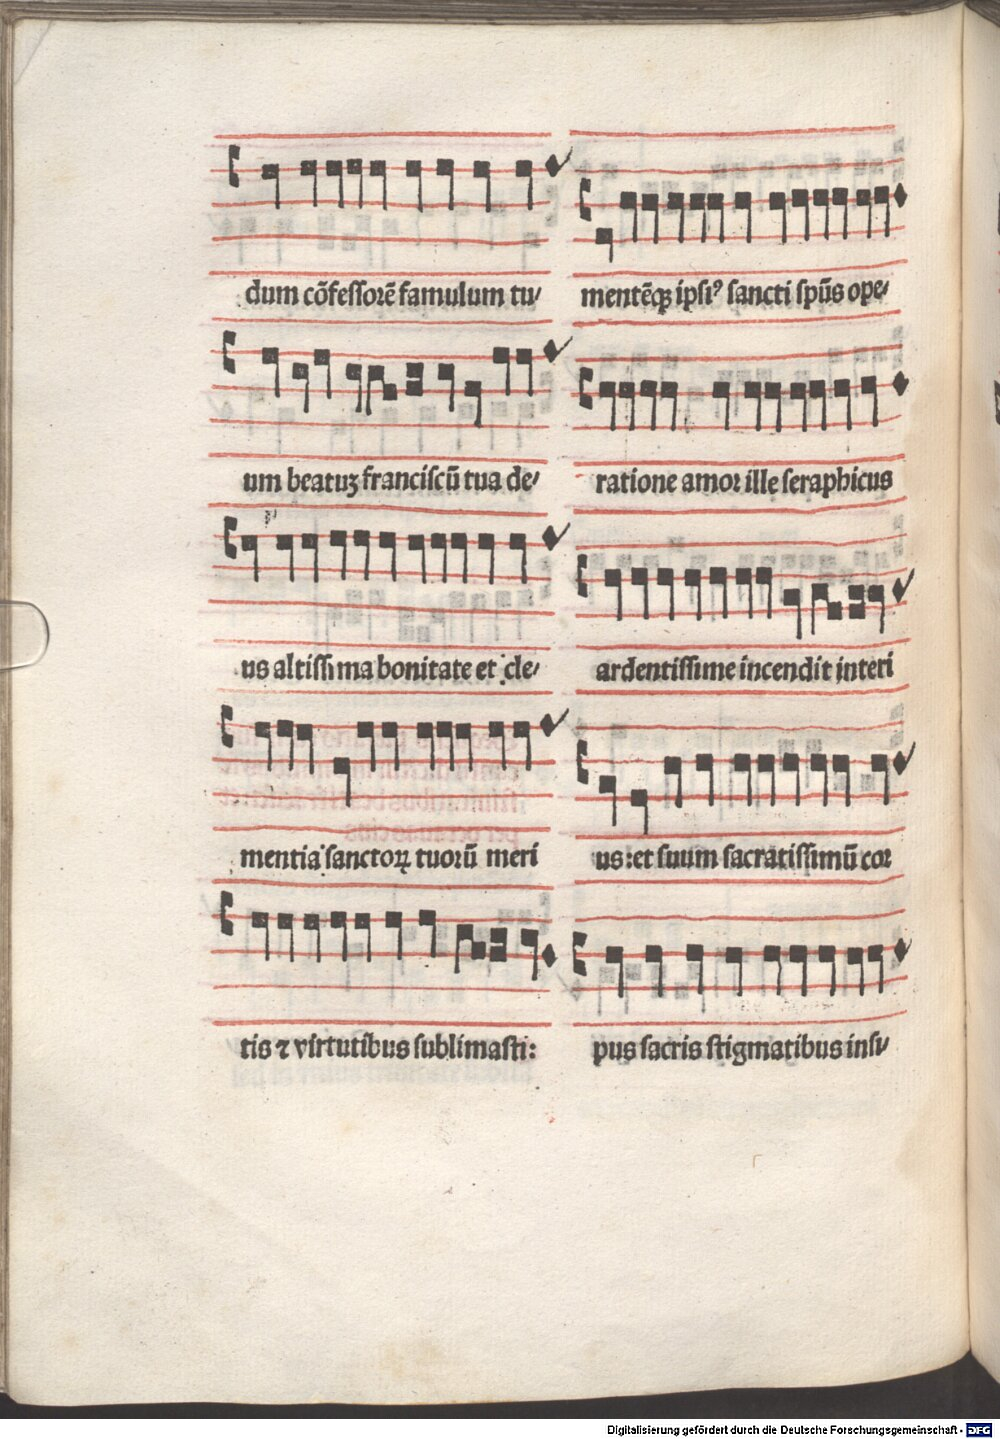 dum cõfessorẽ famulum tu/
um beatuꝫ franciscũ tua de/
us altissima bonitate et cle/
mentia sanctoꝝ tuorũ meri
tis ⁊ virtutibus sublimasti:
mentẽqꝫ ipsiꝰ sancti spũs ope/
ratione amor ille seraphicus
ardentissime incendit interi
us: et suum sacratissimũ cor
pus sacris stigmatibus insi/
Digitalisierung gefördert durch die Deutsche Forschungsgemeinschaft - DFG